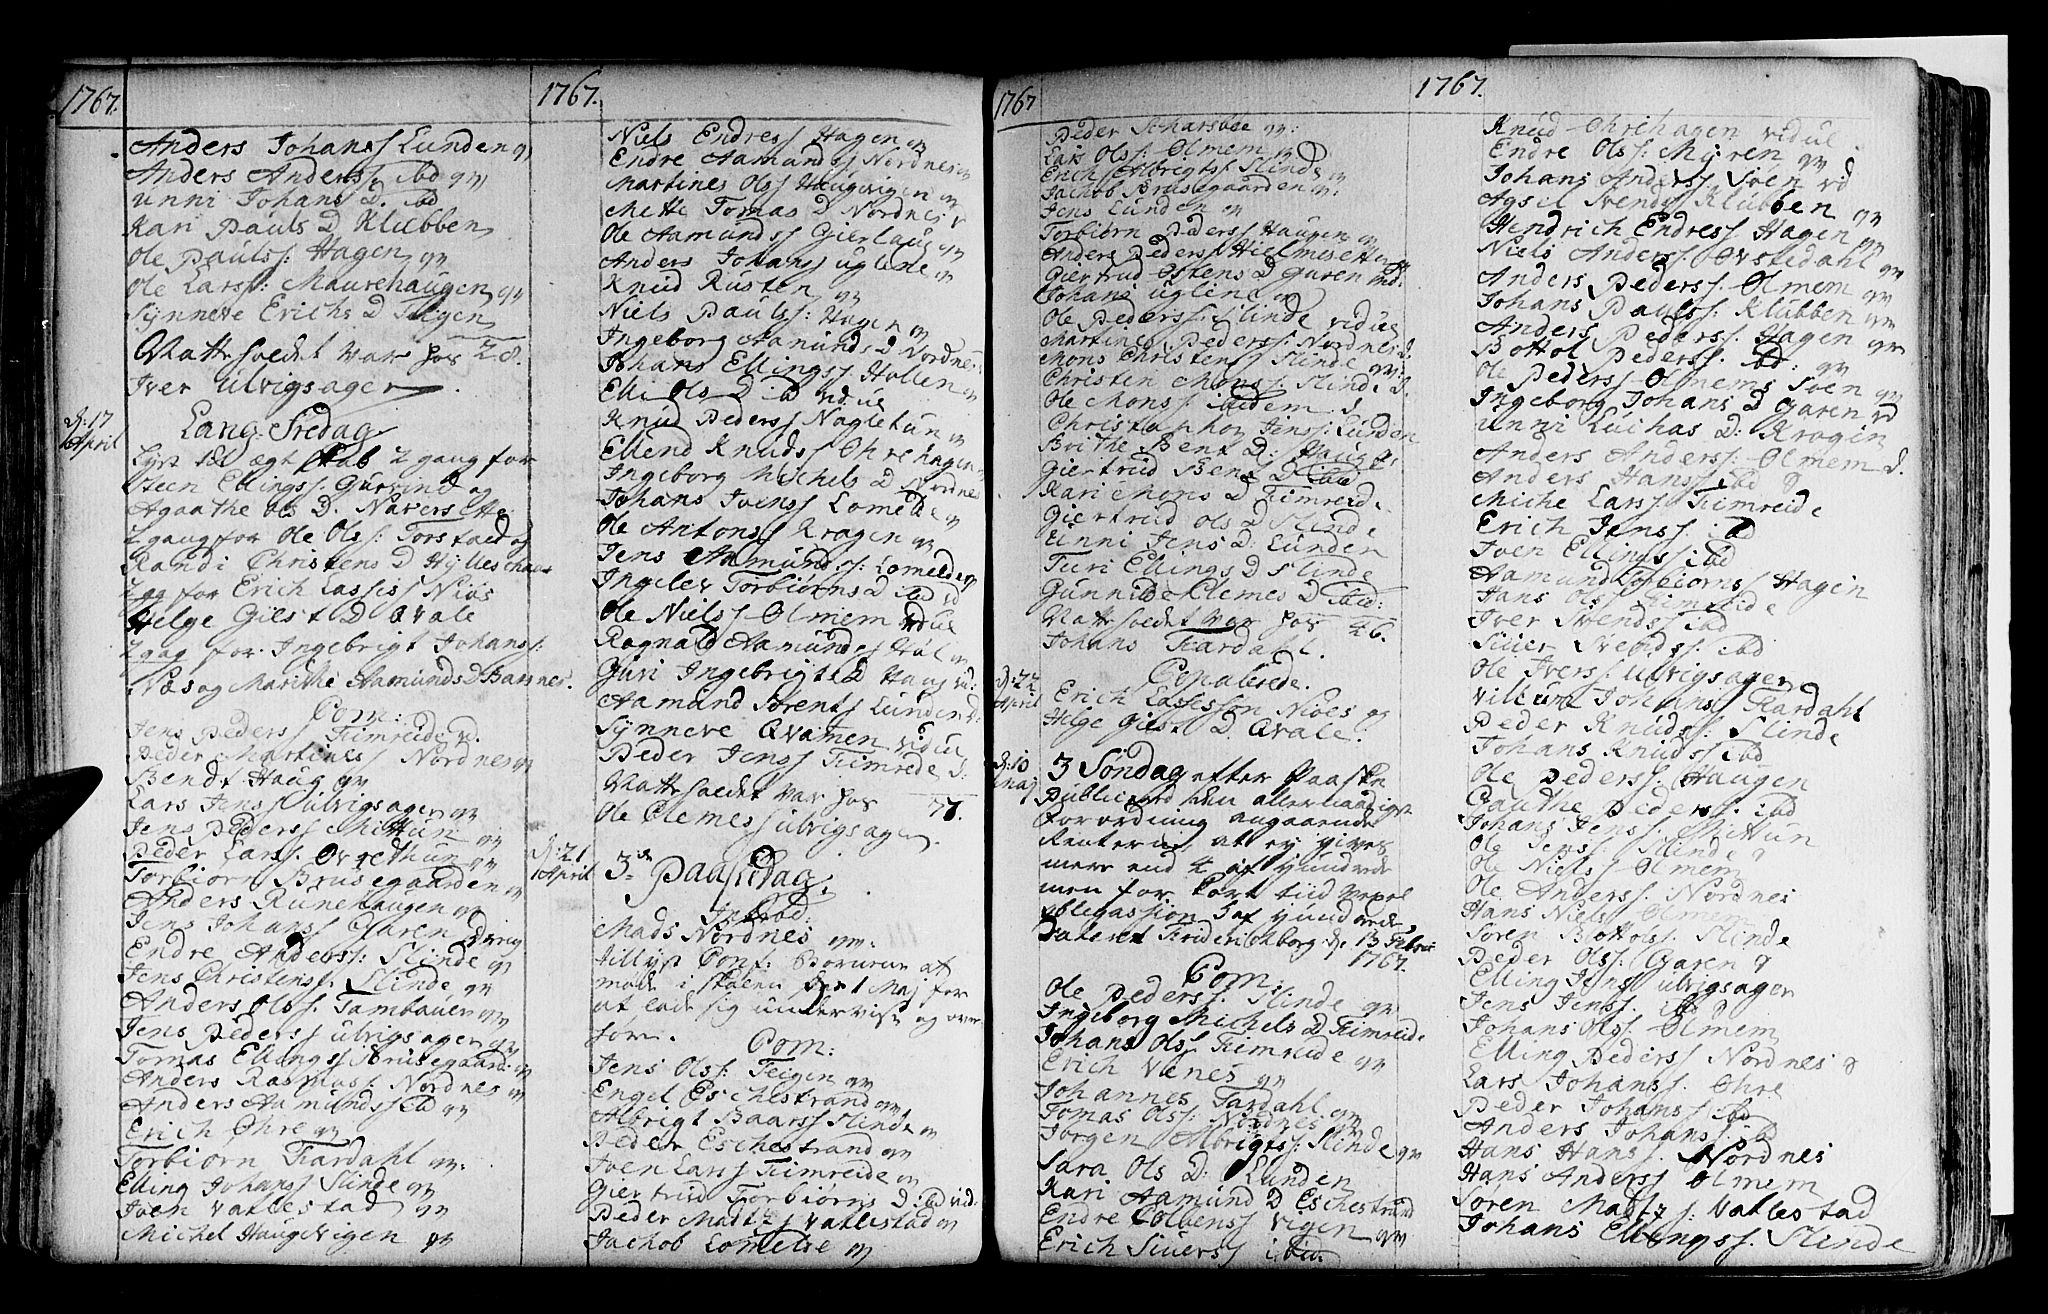 1767.
Anders Johanss Lunden qv
Anders Anderss: ibd qv
Unni Johans D. ibd
Kari Pauls D Klubben
Ole Pauls: Hagen qv
Ole Larss: Maurehaugen qv
Synneve Erichs D Teigen
Natt: var hos 28.
Iver Ulvigsager
D: 17 April
Lang-Fredag
Lyst til ægteskab 2 gang for
Steen Ellings: og
Agaathe Ols D. Naversette
2 gang for Ole Ols: Torstad og
Randi Christens D
2 gg for Erich Lassis: Niøs
Helge Gilst D Qvale
2 gag for Ingebrigt Johans:
Næs og Marithe Aamunds D Hamnes.
Com:
Jens Peders: Fimreide
Peder Martines Nordnes qv
Bendt Haug qv
Lars Jens: Ulvigsager qv
Jens Peders: Mittun qv
Peder Lars: Ovrethun qv
Torbiorn Brusegaarden qv
Anders Runehaugen qv
Jens Johans: Garen
Endre Anders: Slinde qv
Jens Christens: Slinde qv
Anders Ols: Tambauer qv
Jens Peders: Ulvigsager qv
Tomas Ellings: Brusegaard: qv
Anders Rasmus: Nordnes qv
Anders Aamunds: ibd qv
Erich Ohre qv
Torbiorn Fardahl qv:
Elling Johans: Slinde qv
Iven Vatlestad qv
Michel Haugvigen qv
1767.
Niels Endres: Hagen qv
Endre Aamands: Nordnes qv
Martines Ols: Haugvigen qv
Mette Tomas D Nordnes
Ole Aamunds: Gierlaug qv
Anders Johans: Uglene qv
Knud Rusten qv
Niels Pauls: Hagen qv
Ingeborg Aamunds D Nordnes
Johans Ellings: Hollen qv
Elli Ols D ibd vidue
Knud Peders: Nagletun qv
Ellend Knuds: Ohrehagen
Ingeborg Michels D Nordnes
Johans Ivens: Lomelde qv
Ole Antons: Kragen qv
Jens Aamunds: Lomelde qv
Ingelev Torbiorns D ibd
Ole Niels: Olmem vidue
Ragnald Aamunds: Høl qv
Guri Ingebrigts D Haug vid:
Aamund Sorens: Lunden
Synneve Qvamen vidue
Peder Jens: Fimreide
Natt: var hos 71.
Ole Clemes: Ulvigsager.
D: 21 April
3die Paaskedag.
Introd:
Mads Nordnes qv:
Tillyst Conf: Børnene at
møde i skolen den 1 Maj for
at lade sig undervise og over
høre.
Com:
Jens Ols: Feigen qv
Engel Eschestrand qv
Albrigt Baars: Slinde qv
Peder Eschestrand qv
Iven Lars: Fimreide qv
Giertrud Torbiorns D: ibd vid:
Peder Madtz: Vatlestad qv
Jachob Lomelde qv
1767
Peder Skarsbøe qv:
Lars Ols: Olmem qv
Erich Albrigts: Slinde qv
Jachob Brusegaarden qv:
Jens Lunden qv
Torbiorn Peders: Haugen qv
Anders Peders: Hielmesett qv
Giertrud Ostens D Garen vid:
Johans Uglene qv
Ole Peders: Slinde vidue
Martines Peders: Nordnes
Mons Christens: Slinde qv
Christen Mons: Slinde D.
Ole Mons: ibidem
Christophor Jens: Lunden
Brithe Bent D: Haug
Giertrud Bent D ibd
Kari Mons D Fimreide
Giertrud Ols D Slinde
Unni Jens D. Lunden
Turi Ellings D Slinde
Gunnilde Clemes D ibid:
Natt: var hos 46.
Johans Fardahl.
D: 22 April
Copulerede.
Erich Lassesson Niøes og
Helge Gilst D. Qvale.
D: 10 Maj
3 Søndag efter Paaske
Publicered den allernaadigste
Forordning angaaende
Renterne at ey gives
mere end 4 af hundrede
men for kort tiid
obligassion 5 af hundrede,
Dateret Friderichsborg d. 13 Febr:
1767.
Com:
Ole Peders: Slinde qv
Ingeborg Michels D Fimreide
Johans Ols: Fimreide qv
Erich Venes qv
Johannes Fardahl qv
Tomas Ols: Nordnes qv
Jorgen Albrigts: Slinde qv
Sara Ols D: Lunden
Kari Aamund D Eschestrand
Endre Colbens: Vigen qv
Erich Siuers: ibm
1767.
Knud Ohrehagen vidue
Endre Ols: Myren qv
Johans Anders: Soen vid
Agsel Svends: Klubben qv
Hendrich Endres: Hagen qv
Niels Anders: Ovstedahl qv
Anders Peders: Olmem qv
Johans Pauls: Klubben qv
Anders Peders: Hagen qv
Bottol Peders: ibd: qv
Ole Peders: Olmems Soen qv
Ingeborg Johans D Garen vd
Unni Luchas D: Kragin
Anders Anders: Olmem d.
Anders Hans: ibd
Miche Lars: Fimreide
Erich Jens: ibd
Iven Ellings: ibd
Aamund Torbiorns: Hagen
Hans Ols: Fimreide
Iver Svends: ibd
Siuer Svends: ibd
Ole Ivers: Ulvigsager
Villum Johans: Fardahl
Peder Knuds: Slinde
Johans Knuds: ibd
Ole Peders: Haugen
Gauthe Peders: ibd
Johans Jens: Mittun
Ole Jens: Slinde
Ole Niels: Olmem
Ole Anders: Nordnes
Hans Niels: Olmem
Soren Bottols: Slinde
Peder Ols: Garen
Elling Jens: Ulvigsager
Jens Jens: ibd
Johans Ols: Olmem
Elling Peders: Nordnes
Lars Johans: Ohre
Peder Johans: ibd
Anders Johans: ibd
Hans Hans: Nordnes
Hans Anders: Olmem
Soren Madtz: Vatlestad
Johans Ellings: Slinde